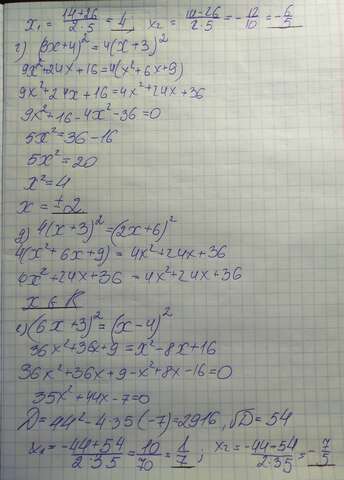 x₁ = (14+26)/(2·5) = 4, x₂ = (14-26)/(2·5) = -12/10 = -6/5
г) (3x+4)² = 4(x+3)²
9x²+24x+16=4(x²+6x+9)
9x²+24x+16=4x²+24x+36
9x²+16-4x²-36=0
5x²=36-16
5x²=20
x²=4
x=±2
д) 4(x+3)²=(2x+6)²
4(x²+6x+9)=4x²+24x+36
4x²+24x+36=4x²+24x+36
x∈R
е) (6x+3)²=(x-4)²
36x²+36x+9=x²-8x+16
36x²+36x+9-x²+8x-16=0
35x²+44x-7=0
D=44²-4·35·(-7)=2916, √D=54
x₁ = (-44+54)/(2·35) = 10/70 = 1/7; x₂ = (-44-54)/(2·35) = -7/5